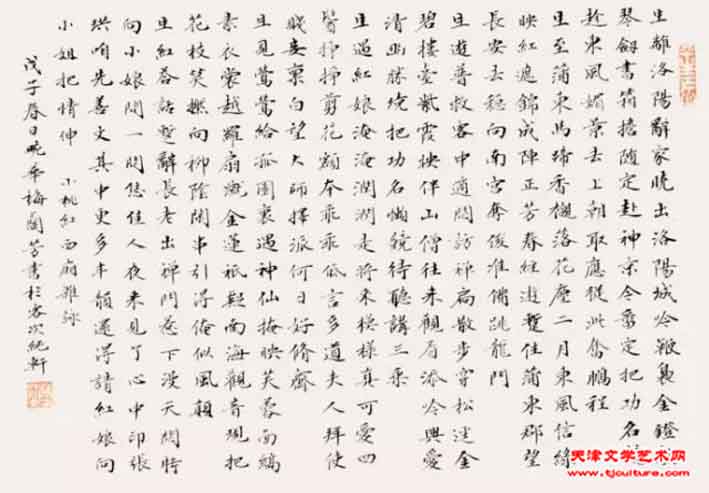 生離洛陽辭家曉出洛陽城吟鞭裊金鐙
琴劍書箱擔隨定赴神京今番定把功名
趁東風媚景去上朝取應從此奮鵬程
生至蒲東馬蹄香襯落花塵二月東風信綠
映紅遮錦成陣正芳春經遊蹔住蒲東郡望
長安去穩向南宮奪俊準備跳龍門
生遊普救客中適悶訪禪扃散步穿松逕金
碧樓臺氣霞映伴山僧往來觀看添吟興愛
清幽勝境把功名懶競待聽講三乘
生遇紅娘淹淹潤潤走將來模樣真可愛四
鬢抪抪剪花額本乖乖低言多道夫人拜使
賤妾稟白望大師擇派何日好修齋
生見鶯鶯給孤園裏遇神仙掩映芙蓉面縞
素衣裳越羅扇蹴金蓮祇疑南海觀音現把
花枝笑撚向柳陰閒串引得俺似風顛
生紅答話蹔辭長老出禪門惹下漫天悶特
向小娘問一問恁佳人夜來見了心中印張
珙咱先善文其中更多丰韻還得請紅娘向
小姐把情伸　小桃紅西廂雜詠
戊子春日曉華梅蘭芳書於客次純軒
天津文学艺术网
www.tjculture.com